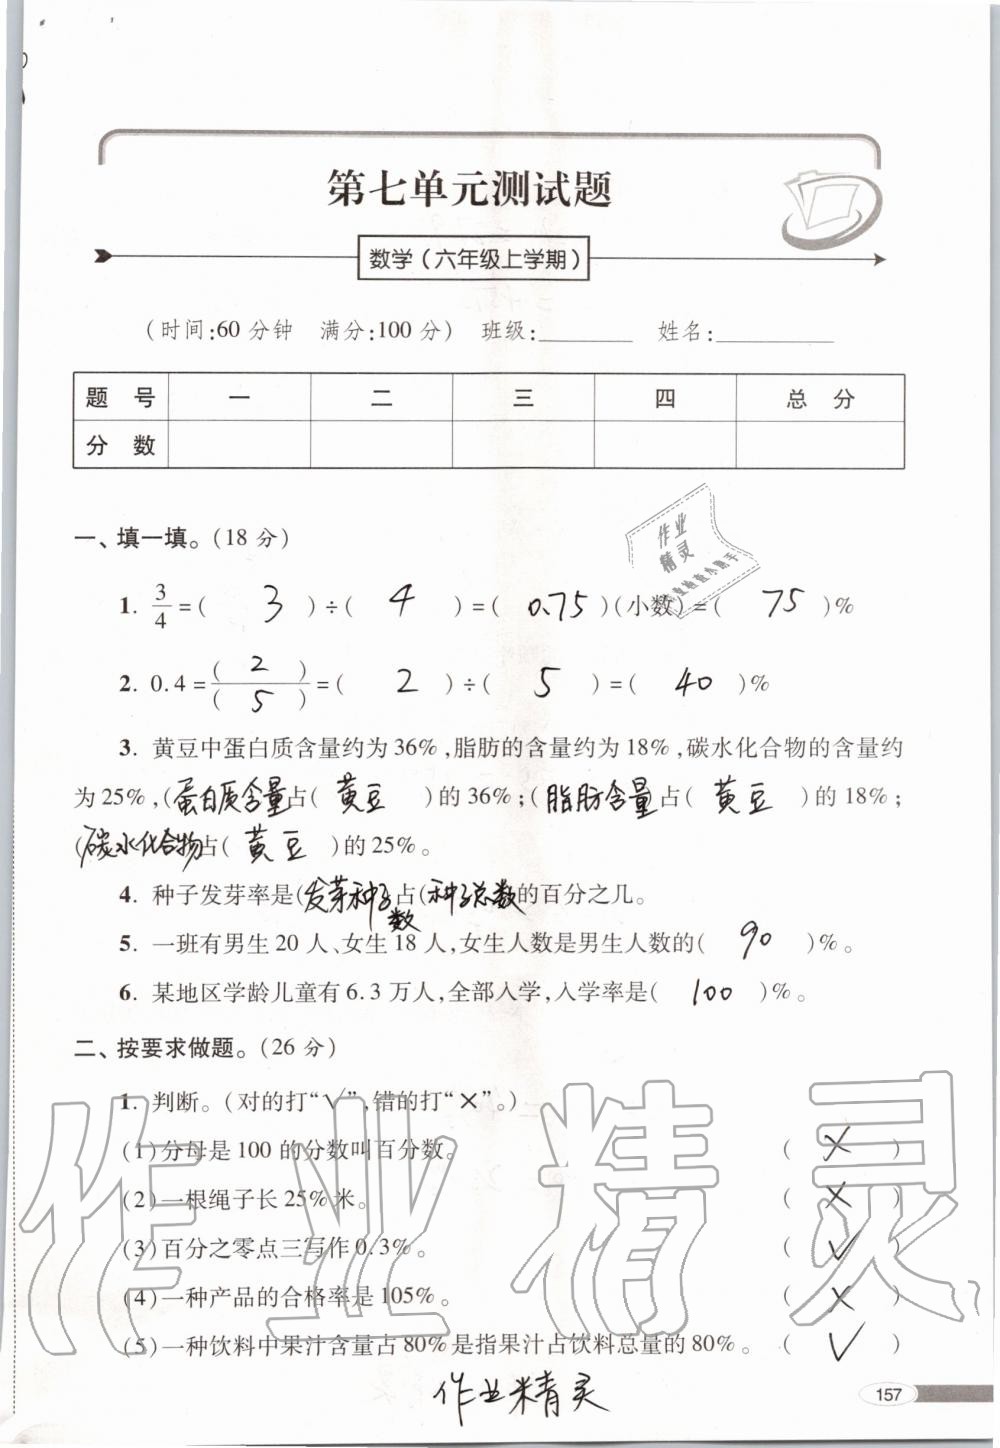 第七单元测试题
数学(六年级上学期)
(时间:60分钟 满分:100分) 班级:________ 姓名:__________
题 号 一 二 三 四 总 分
分 数
一、填一填。(18分)
作业
精灵
1. 3/4=( 3 )÷( 4 )=( 0.75 )(小数)=( 75 )%
2. 0.4=( 2 )/( 5 )=( 2 )÷( 5 )=( 40 )%
3. 黄豆中蛋白质含量约为36%,脂肪的含量约为18%,碳水化合物的含量约
为25%,(蛋白质含量占( 黄豆 )的36%;(脂肪含量占( 黄豆 )的18%;
(碳水化合物占( 黄豆 )的25%。
4. 种子发芽率是(发芽种子数占(种子总数的百分之几。
5. 一班有男生20人、女生18人,女生人数是男生人数的( 90 )%。
6. 某地区学龄儿童有6.3万人,全部入学,入学率是( 100 )%。
二、按要求做题。(26分)
1. 判断。(对的打“√”,错的打“×”。)
(1)分母是100的分数叫百分数。 ( × )
(2)一根绳子长25%米。 ( × )
(3)百分之零点三写作0.3%。 ( √ )
(4)一种产品的合格率是105%。 ( × )
(5)一种饮料中果汁含量占80%是指果汁占饮料总量的80%。 ( √ )
作业精灵
作业精灵
157